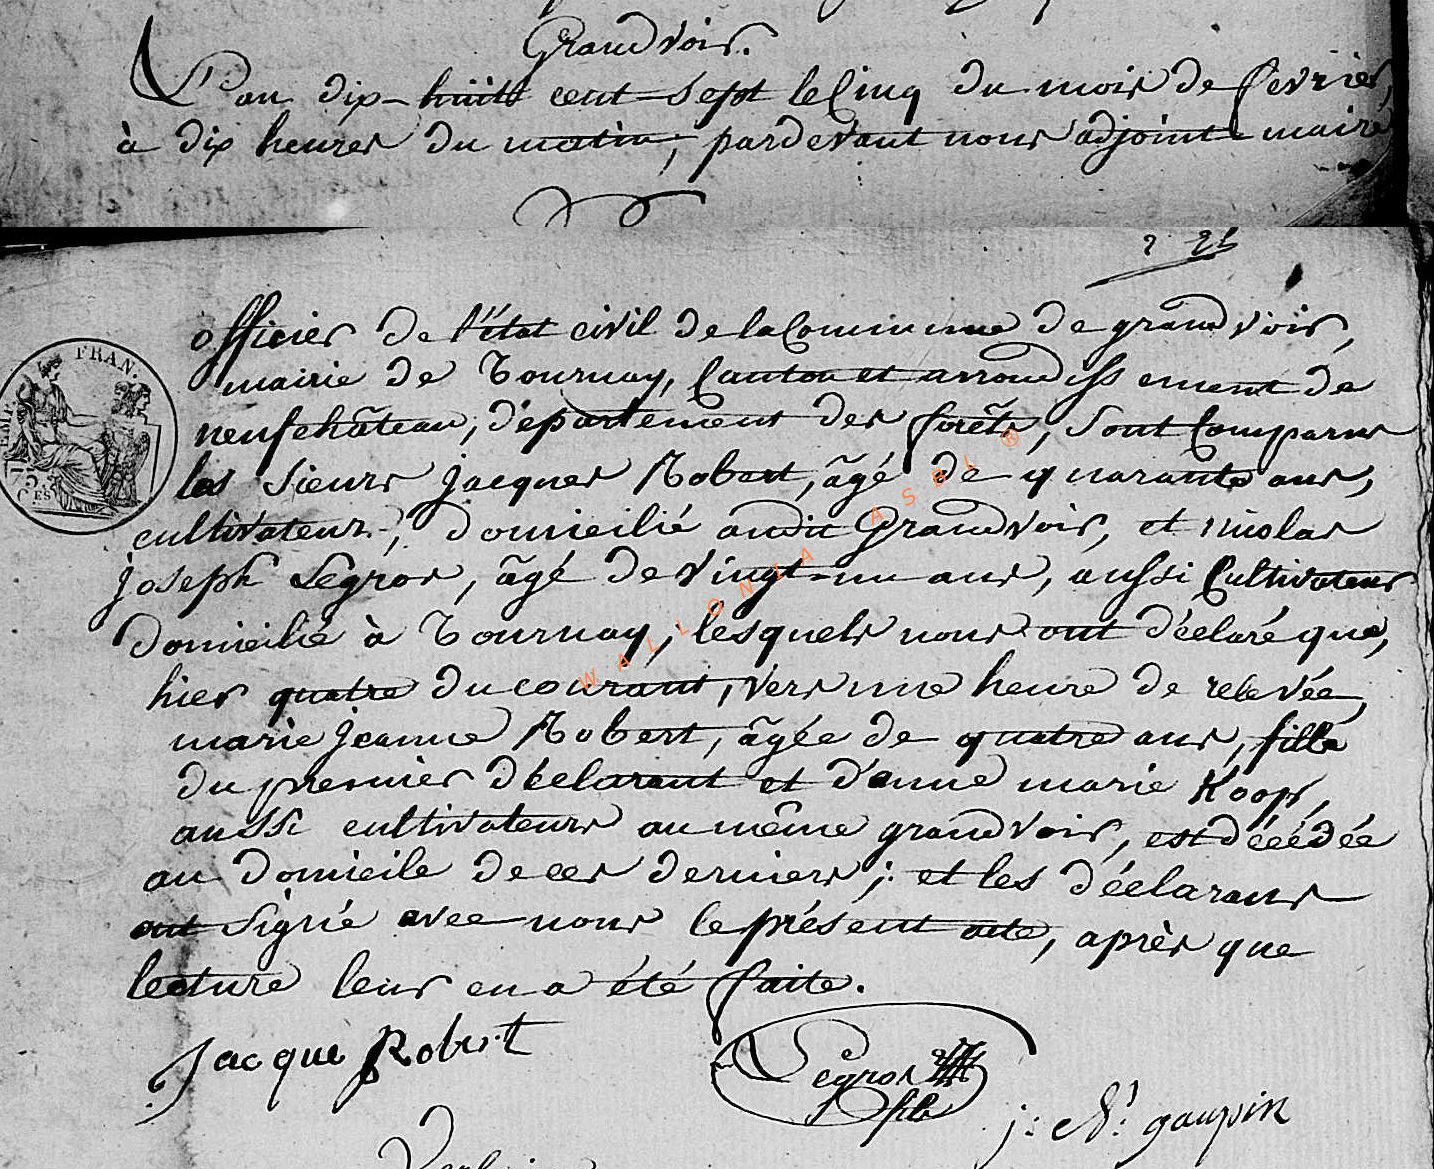 Grandvoir.
L'an dix-huit cent-sept le Cinq du mois de fevrier,
à dix heures du matin, pardevant nous adjoint-maire
officier de l'état civil de la Commune de grandvoir,
mairie de Tournay, Canton et arrondissement de
neufchâteau, département des forêts, Sont Comparus
les Sieurs jacques Robert, âgé de quarante ans,
cultivateur, domicilié audit Grandvoir, et nicolas
joseph Legros, âgé de vingt-un ans, aussi Cultivateur
domicilié à Tournay, lesquels nous ont déclaré que,
hier quatre du courant, vers une heure de relevée,
marie jeanne Robert, âgée de quatre ans, fille
du premier déclarant et d'anne marie Koops,
aussi cultivateurs au même grandvoir, est décédée
au domicile de ces derniers; et les déclarans
ont signé avec nous le présent acte, après que
lecture leur en a été faite.
Jacque Robert
Legros fils
j: Nˢ: gaupin
EMP. FRAN.
75 Cᴱˢ
WALLONIA ASBL ®